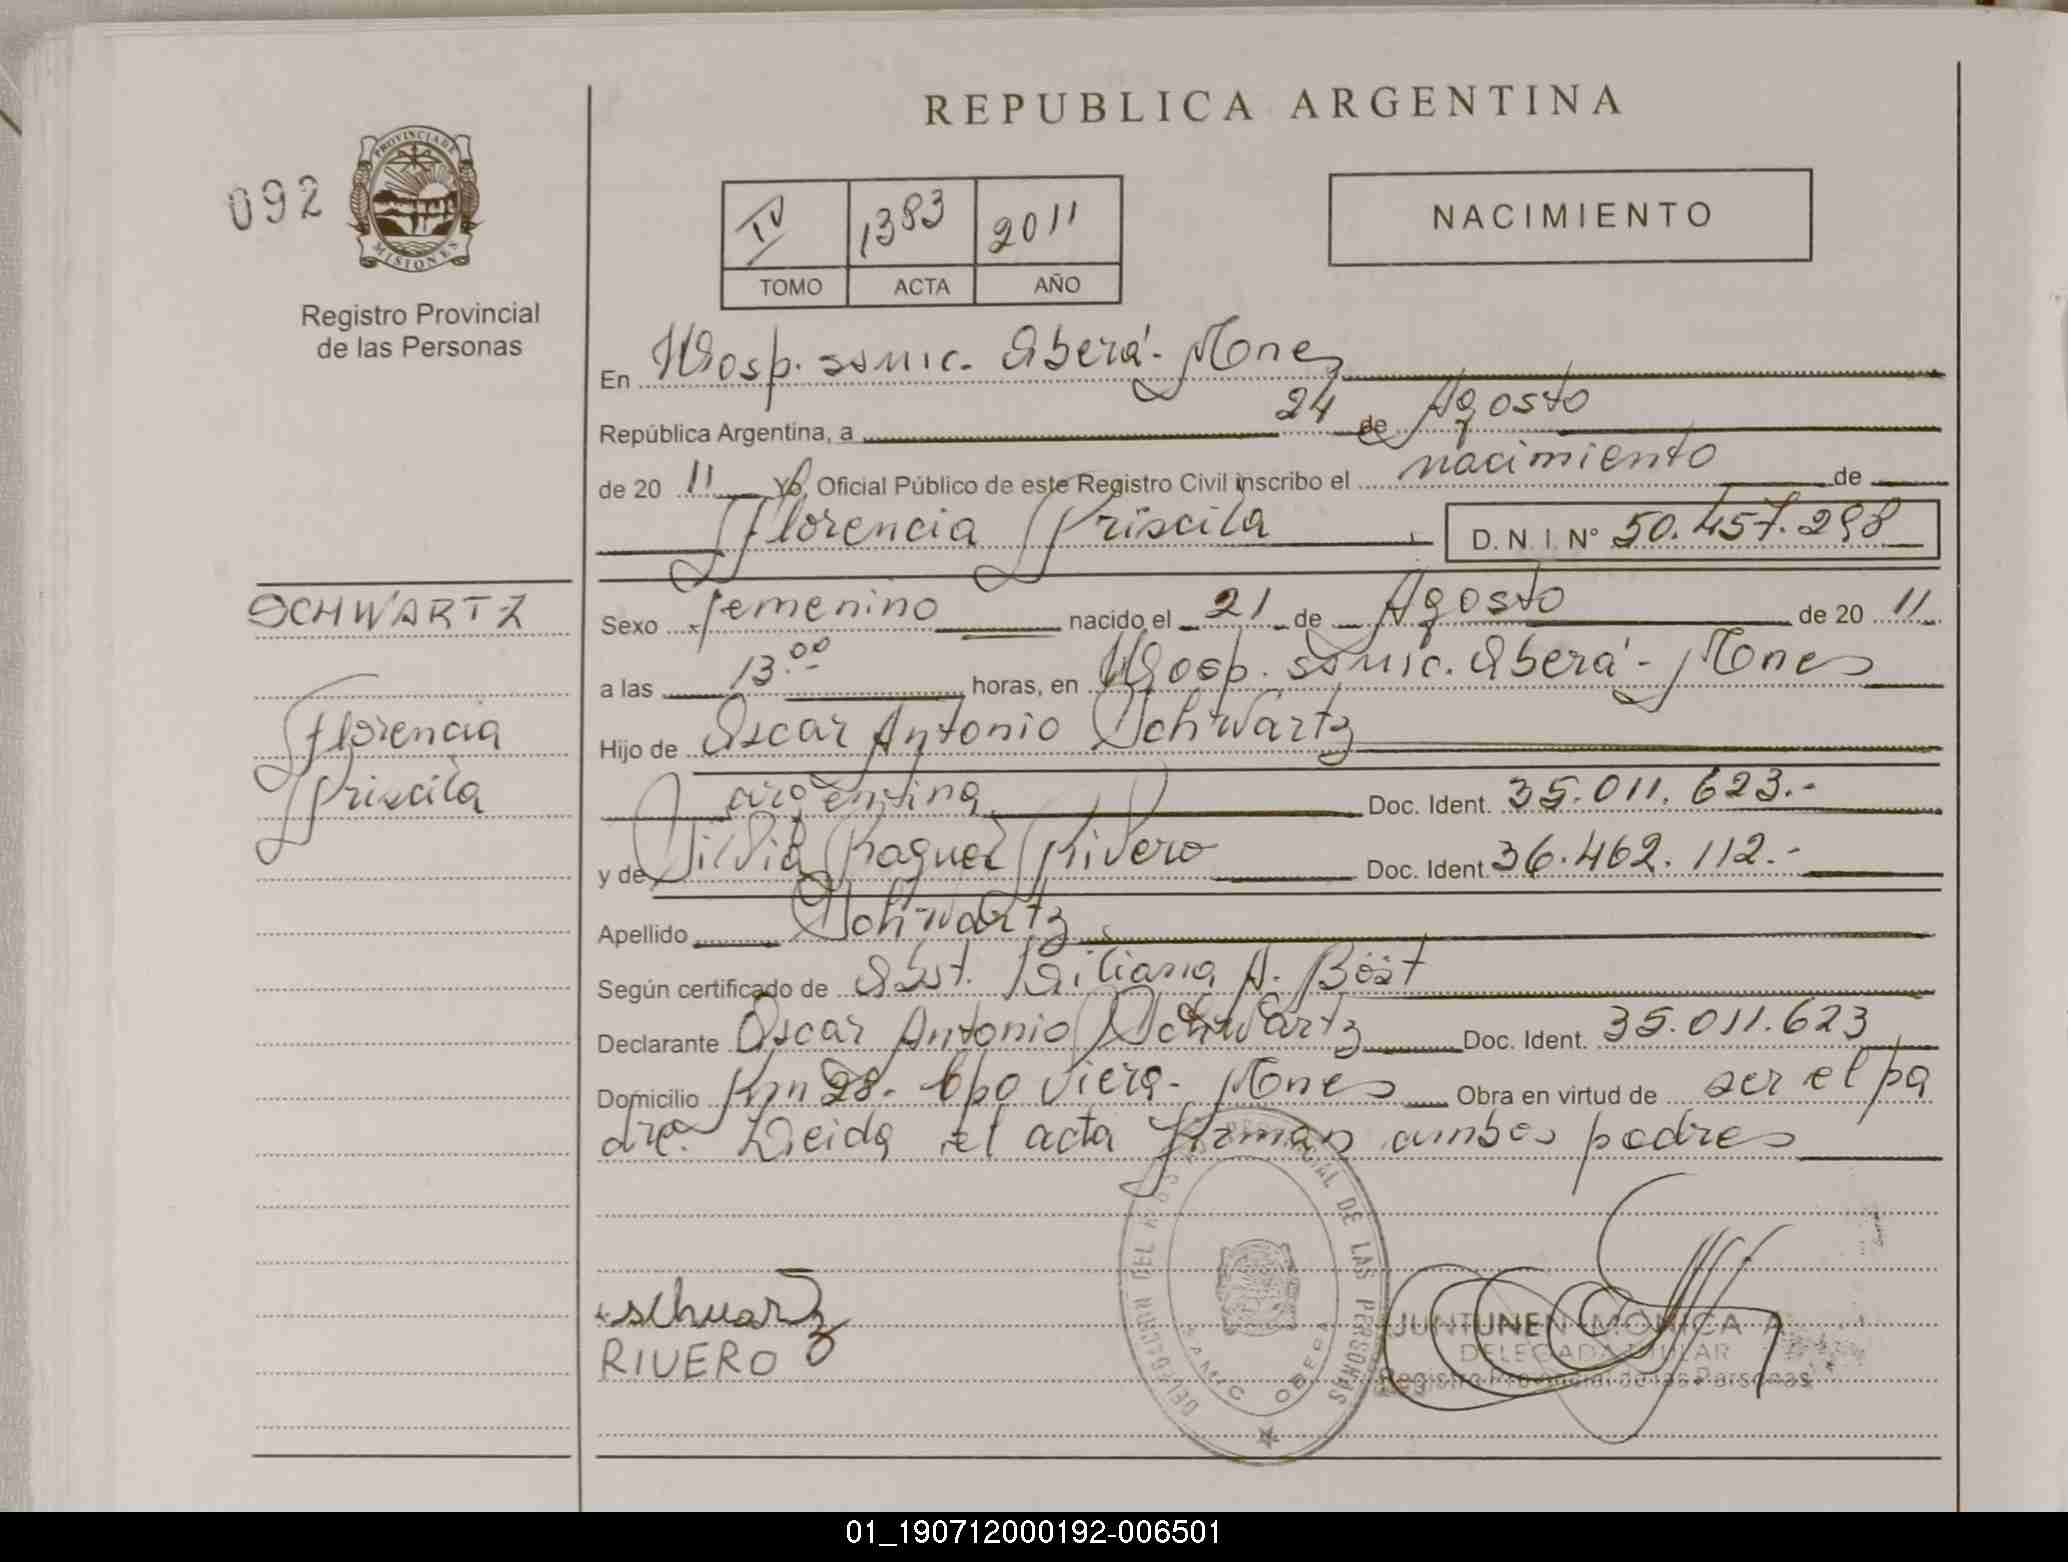 REPUBLICA ARGENTINA
092
PROVINCIA DE
MISIONES
Registro Provincial
de las Personas
IV 1383 2011
TOMO ACTA AÑO
NACIMIENTO
En Hosp. ssmic. Oberá - Mones
República Argentina, a 24 de Agosto
de 20 11 Yo, Oficial Público de este Registro Civil inscribo el nacimiento de
Florencia Priscila D. N. I. N° 50.457.298
SCHWARTZ
Florencia
Priscila
Sexo femenino nacido el 21 de Agosto de 20 11
a las 13.00 horas, en Hosp. ssmic. Oberá - Mones
Hijo de Oscar Antonio Schwartz
argentina Doc. Ident. 35.011.623.-
y de Silvia Raquel Rivero Doc. Ident. 36.462.112.-
Apellido Schwartz
Según certificado de Obst. Liliana A. Böst
Declarante Oscar Antonio Schwartz Doc. Ident. 35.011.623
Domicilio Km 28 - Cpo Viera - Mones Obra en virtud de ser el pa
dre. Leida el acta firman ambos padres
schuarz
RIVERO
DELEGACION DEL REGISTRO PROVINCIAL DE LAS PERSONAS
SAMIC OBERA
JUNTUNEN MONICA A
DELEGADA TITULAR
Registro Provincial de las Personas
01_190712000192-006501